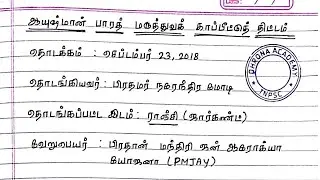 ஆயுஷ்மான் பாரத் மருத்துவக் காப்பீட்டுத் திட்டம்
தொடக்கம் : செப்டம்பர் 23, 2018
தொடங்கியவர் : பிரதமர் நரேந்திர மோடி
தொடங்கப்பட்ட இடம் : ராஞ்சி (ஜார்கண்ட்)
வேறுபெயர் : பிரதான் மந்திரி ஜன் ஆரோக்யா
யோஜனா (PMJAY)
DHRONA ACADEMY
TNPSC